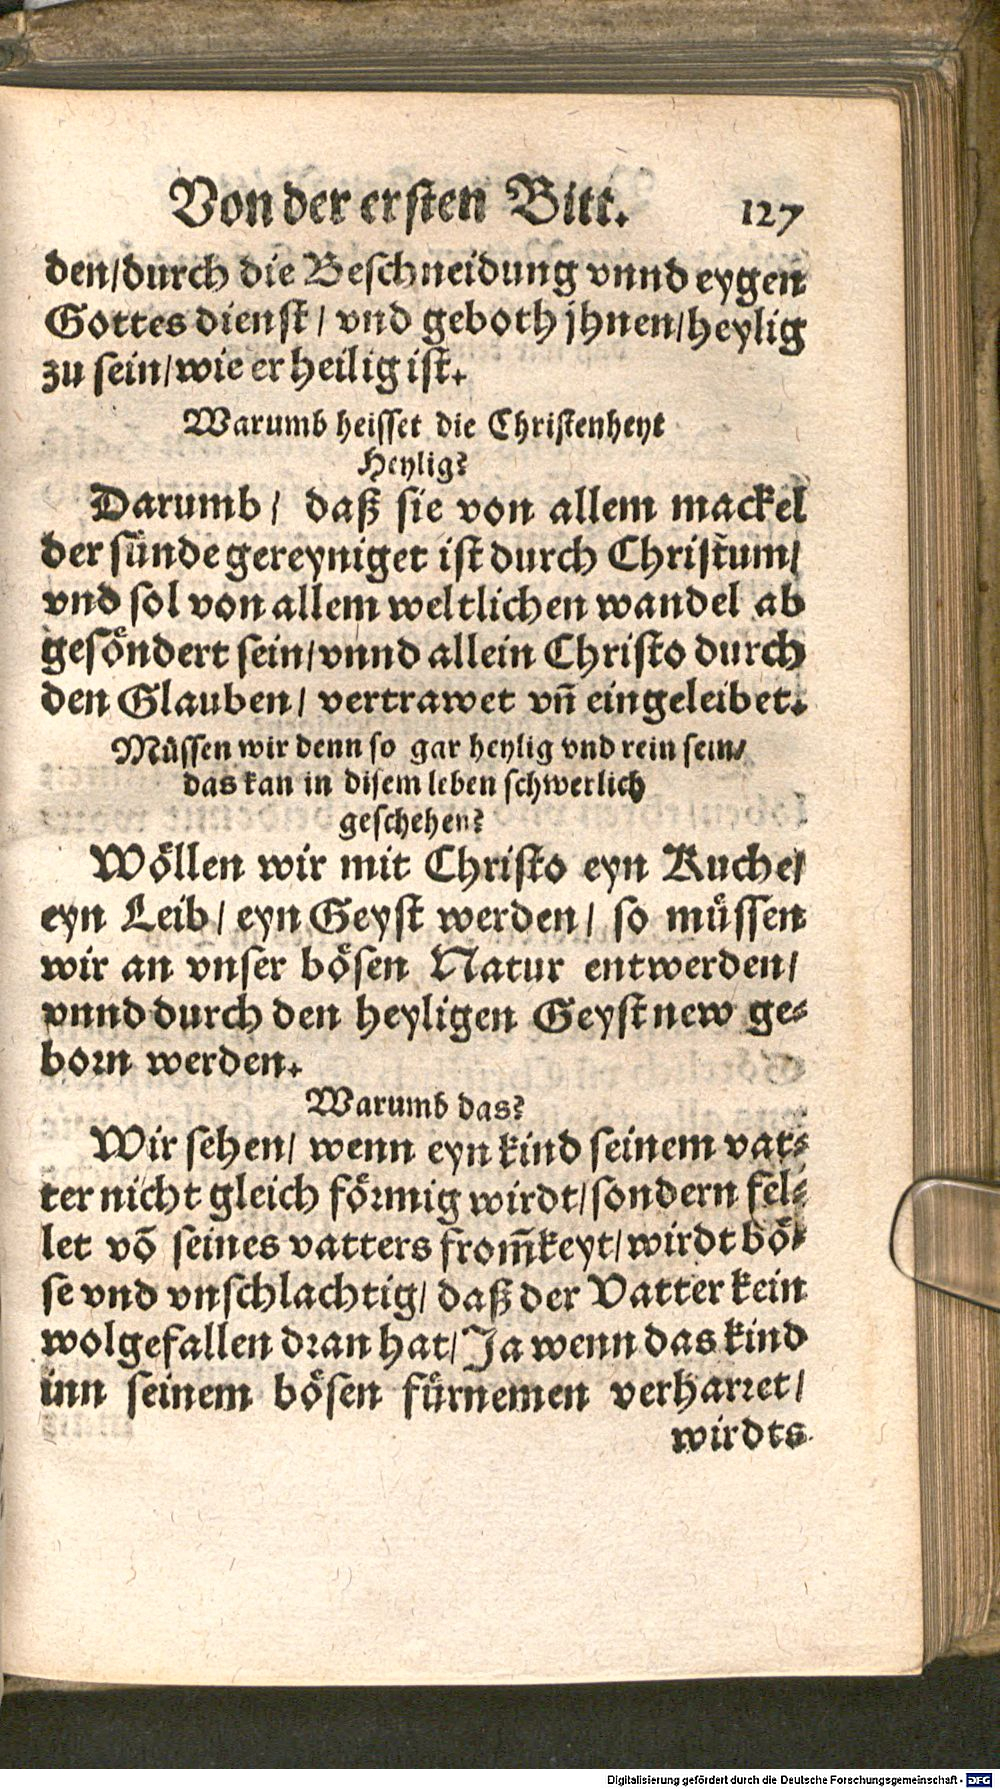 Von der ersten Bitt. 127
den/durch die Beschneidung vnnd eygen
Gottes dienst/ vnd geboth jhnen/heylig
zu sein/wie er heilig ist.
Warumb heisset die Christenheyt
Heylig?
Darumb/ daß sie von allem mackel
der sünde gereyniget ist durch Christum/
vnd sol von allem weltlichen wandel ab
gesöndert sein/vnnd allein Christo durch
den Glauben/ vertrawet vñ eingeleibet.
Müssen wir denn so gar heylig vnd rein sein/
das kan in disem leben schwerlich
geschehen?
Wöllen wir mit Christo eyn Kuche/
eyn Leib/ eyn Geyst werden/ so müssen
wir an vnser bösen Natur entwerden/
vnnd durch den heyligen Geyst new ge-
born werden.
Warumb das?
Wir sehen/ wenn eyn kind seinem vat-
ter nicht gleich förmig wirdt/sondern fel-
let võ seines vatters from̃keyt/wirdt bö-
se vnd vnschlachtig/ daß der Vatter kein
wolgefallen dran hat/Ja wenn das kind
inn seinem bösen fürnemen verharret/
wirdts
Digitalisierung gefördert durch die Deutsche Forschungsgemeinschaft - DFG